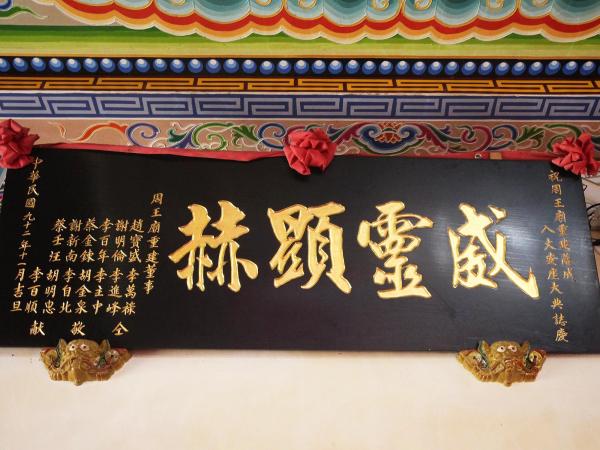 祝周王廟重建落成
入火安座大典誌慶
威靈顯赫
周王廟重建董事
趙寶盛 李萬祿 仝
謝明倫 李進峰
李百年 李主中
蔡金錸 胡金泉 敬
謝新南 李自北
蔡士汪 胡明忠
李百順 献
中華民國九十二年十一月吉旦